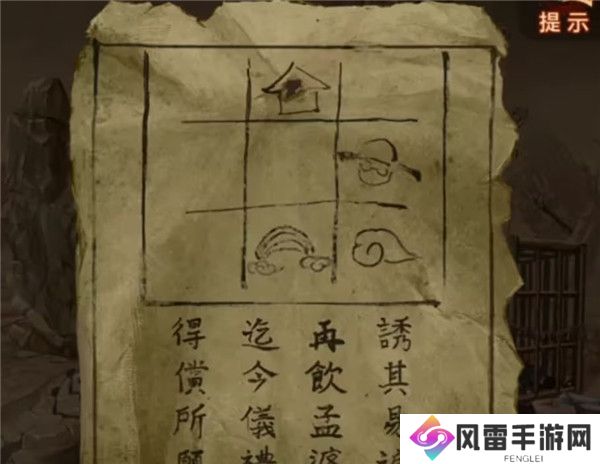 提示
誘其易
再飲孟婆
迄今儀禮
得償所願
风雷手游网
FENGLEI